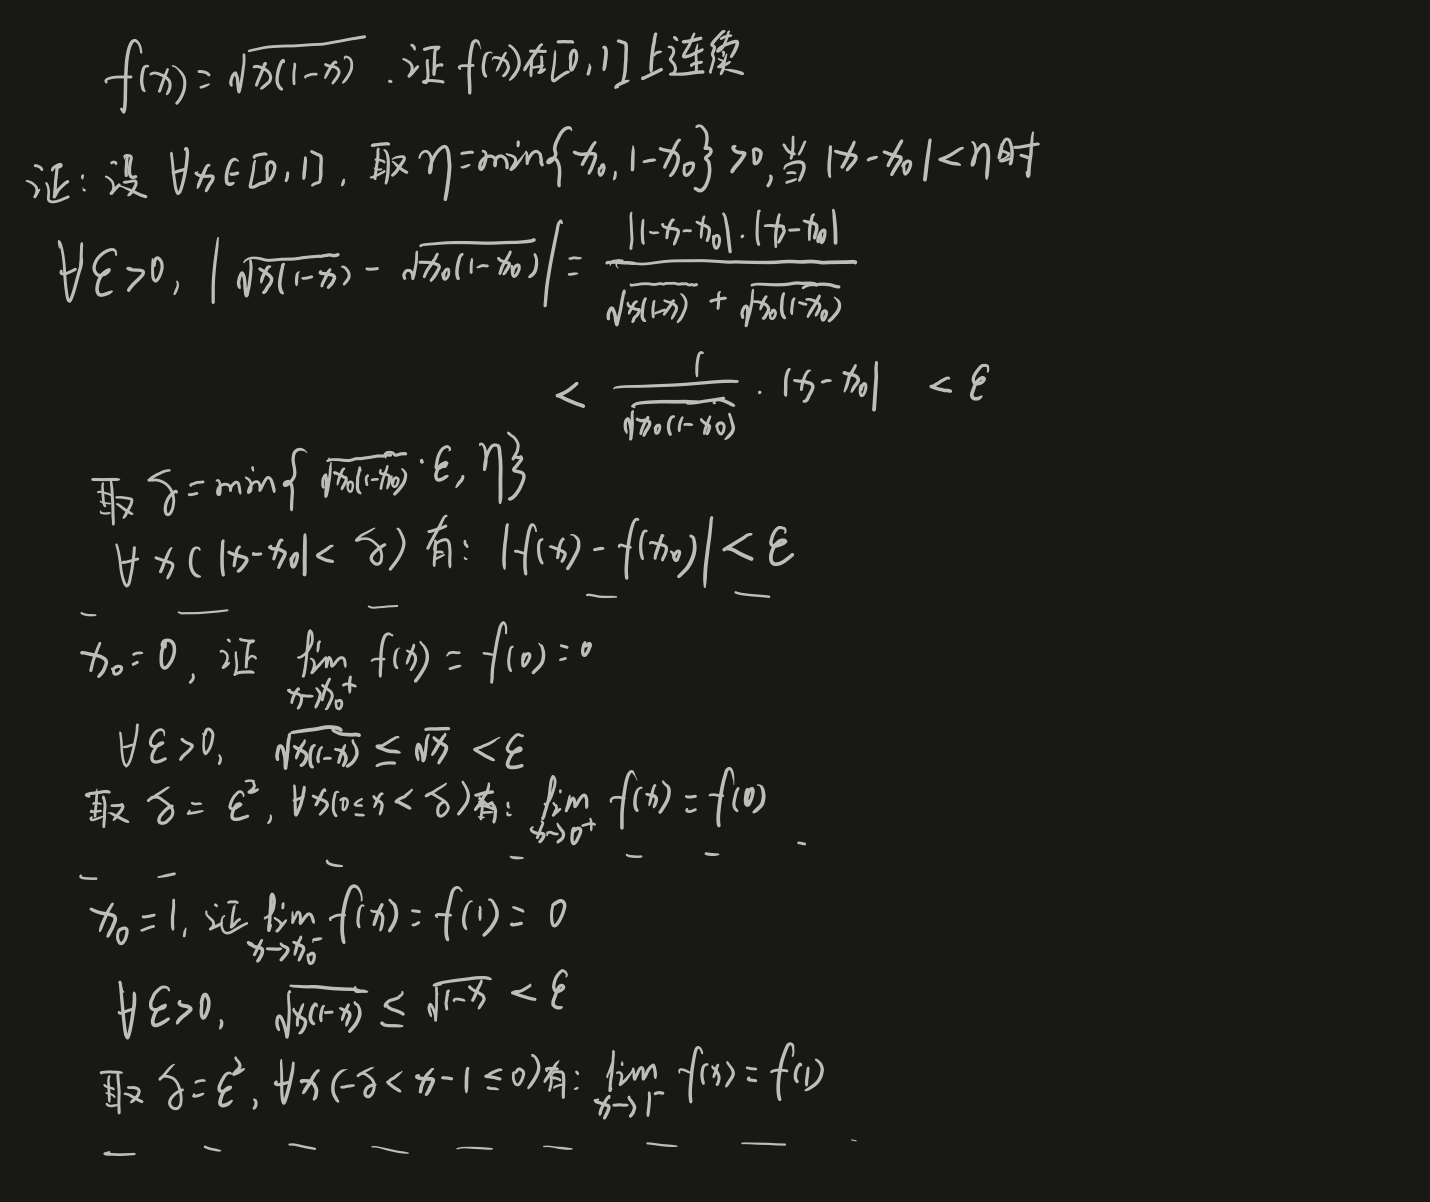 f(x)=√x(1-x) . 证 f(x)在[0,1]上连续
证: 设 ∀x∈[0,1], 取 η=min{x₀,1-x₀}>0,当 |x-x₀|<η时
∀ε>0, |√x(1-x) - √x₀(1-x₀)| = |1-x-x₀|·|x-x₀| / √x(1-x) + √x₀(1-x₀)
< 1/√x₀(1-x₀) · |x-x₀| < ε
取 δ=min{√x₀(1-x₀)·ε, η}
∀x(|x-x₀|<δ) 有: |f(x)-f(x₀)|<ε
x₀=0, 证 lim x→x₀⁺ f(x) = f(0)=0
∀ε>0, √x(1-x) ≤ √x < ε
取 δ=ε², ∀x(0≤x<δ)有: lim x→0⁺ f(x)=f(0)
x₀=1, 证 lim x→x₀⁻ f(x)=f(1)=0
∀ε>0, √x(1-x) ≤ √1-x < ε
取 δ=ε², ∀x(-δ<x-1≤0)有: lim x→1⁻ f(x)=f(1)